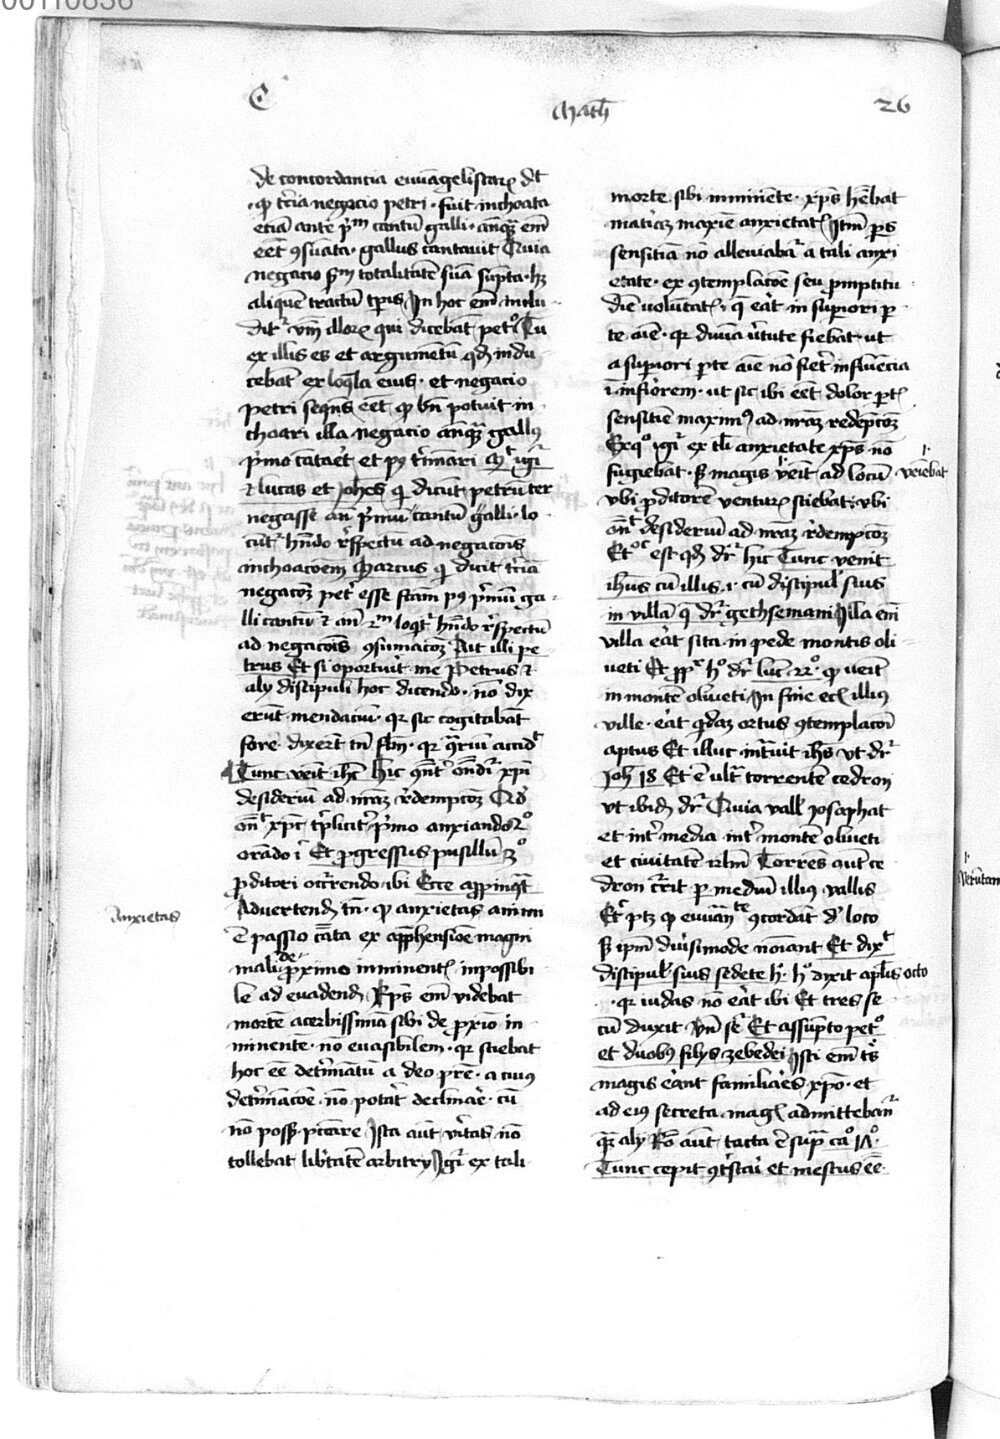 00110836
C
Math
26
de concordancia ewangelistarum dt
qp tercia negacio petri fuit inchoata
etiam ante pm cantum galli anquam em
eet consumata gallus cantauit Quia
negacio sm totalitatem suam supta hz
aliquem tractum tpis In hoc em inclu
ditur vm illorum qui dicebant petro Tu
ex illis es et argumentum qd indu
cebant ex loquela eius et negacio
petri sequens eet qp bn potuit in
choari illa negacio anquam gallus
pmo cantaret et pus terminari
et lucas et Johes qui dicunt petrum ter
negasse an pmum cantum galli lo
cuntur habendo respectum ad negacionis
inchoacoem Marcus qui dicit terciam
negacoem petri esse factam pus pmum ga
lli cantum et an 2m loquitur habendo respectum
ad negacionis consumacoem Ait illi pe
trus Et si oportuerit me Petrus et
aly discipuli hoc dicendo non dix
erunt mendacium qr sic cogitabant
fore dixerunt tn falsum qr contrarium accidit
Tunc venit ihc Hic consequenter ostenditur xpi
desiderium ad nostram redempcoem
ondit xpc tripliciter primo anxiando 2o
orando ibi Et progressus pusillum 3o
proditori occurrendo ibi Ecce appropinquat
Aduertendum tn qp anxietas animi
Anxietas
est passio causata ex apprehensione magni
mali de proximo imminentis impossibi
le ad euadendum Xps em videbat
mortem acerbissimam sibi de proximo in
minentem non euasibilem qr sciebat
hoc esse determinatum a deo patre a cuius
determinacoe non poterat declinare cum
non posset peccare Ista autem veritas non
tollebat libertatem arbitry Igitur ex tali
morte sibi imminente xps habebat
materiam maxime anxietatis Item pars
sensitiua non alleuiabatur a tali anxi
etate ex contemplacone seu promptitu
dine voluntatis que erat in superiori par
te anime qr diuina virtute fiebat ut
a superiori parte anime non fieret influencia
in inferiorem ut sic ibi eet dolor partis
sensitiue maximus ad nostram redempcoem
Ex quo igitur ex tali anxietate xps non
fugiebat sed magis venit ad locum
veniebat
vbi proditorem venturum sciebat vbi
ondit desiderium ad nostram redempcoem
Et hoc est qd dr hic Tunc venit
ihus cum illis i cum discipulis suis
in villam que dr gethsemani Illa em
villa erat sita in pede montis oli
ueti Et propter hoc dr luc 22o qp venit
in montem oliueti In fine em illius
ville erat quidam ortus contemplacoi
aptus Et illuc intrauit ihs vt dr
Joh 18 Et est ultra torrentem cedron
vt ibidem dr Quia vallis Josaphat
et inter media inter montem oliueti
et ciuitatem irlm Torrens autem ce
dron currit per medium illius vallis
Et sic patet qp ewangeliste concordant de loco
sed ipsum diuersimode nominant Et dixit
discipulis suis sedete hic hoc dixit apostolis octo
qr iudas non erat ibi Et tres se
cum duxit Vnde sequitur Et assumpto petro
et duobus filys zebedei Isti em tres
magis erant familiares xpo et
ad eius secreta magis admittebantur
quam aly Racio autem tacta est supra ca 17
Tunc cepit contristari et mestus esse